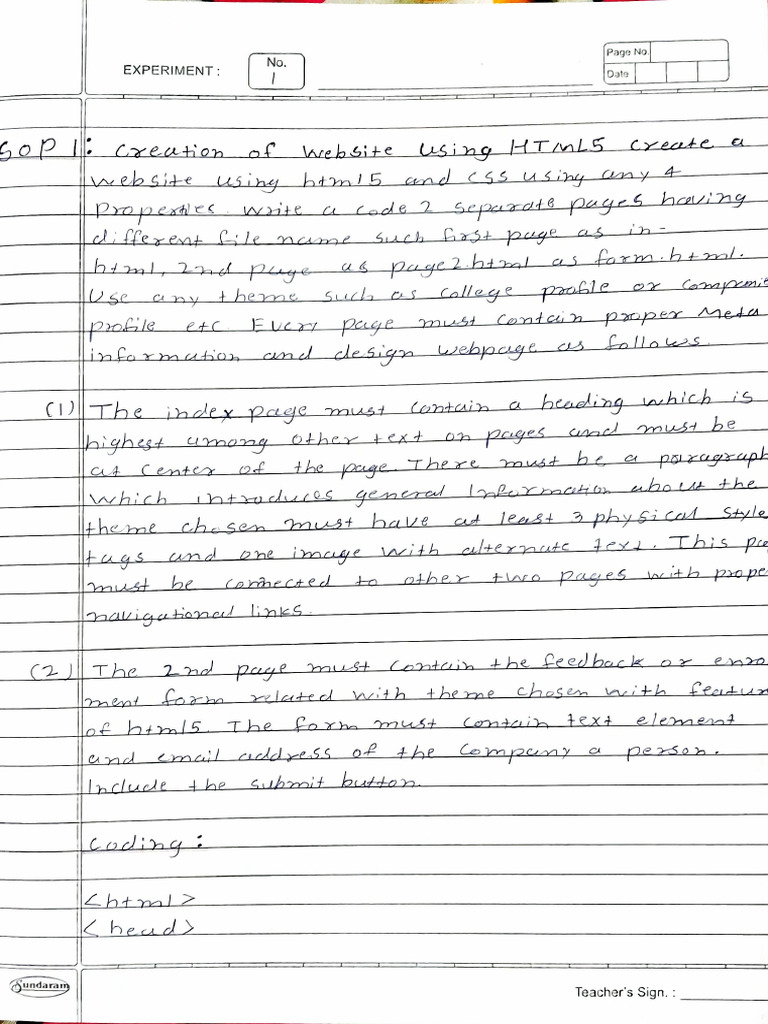 EXPERIMENT :
No.
1
Page No.
Date
SOP 1: Creation of website using HTML5 create a
website using html5 and css using any 4
Properties. Write a code 2 separate pages having
different file name such first page as in-
html, 2nd page as page2.html as form.html.
Use any theme such as college profile or companie
profile etc Every page must contain proper Meta
information and design webpage as follows
(1) The index page must contain a heading which is
highest among other text on pages and must be
at center of the page. There must be a paragraph
which introduces general Information about the
theme chosen must have at least 3 physical style
tags and one image with alternate text. This pag
must be connected to other two pages with prope
navigational links.
(2) The 2nd page must contain the feedback or enro
ment form related with theme chosen with featur
of html5. The form must contain text element
and email address of the company a person.
Include the submit button.
Coding :
<html>
<head>
Sundaram
Teacher's Sign. :